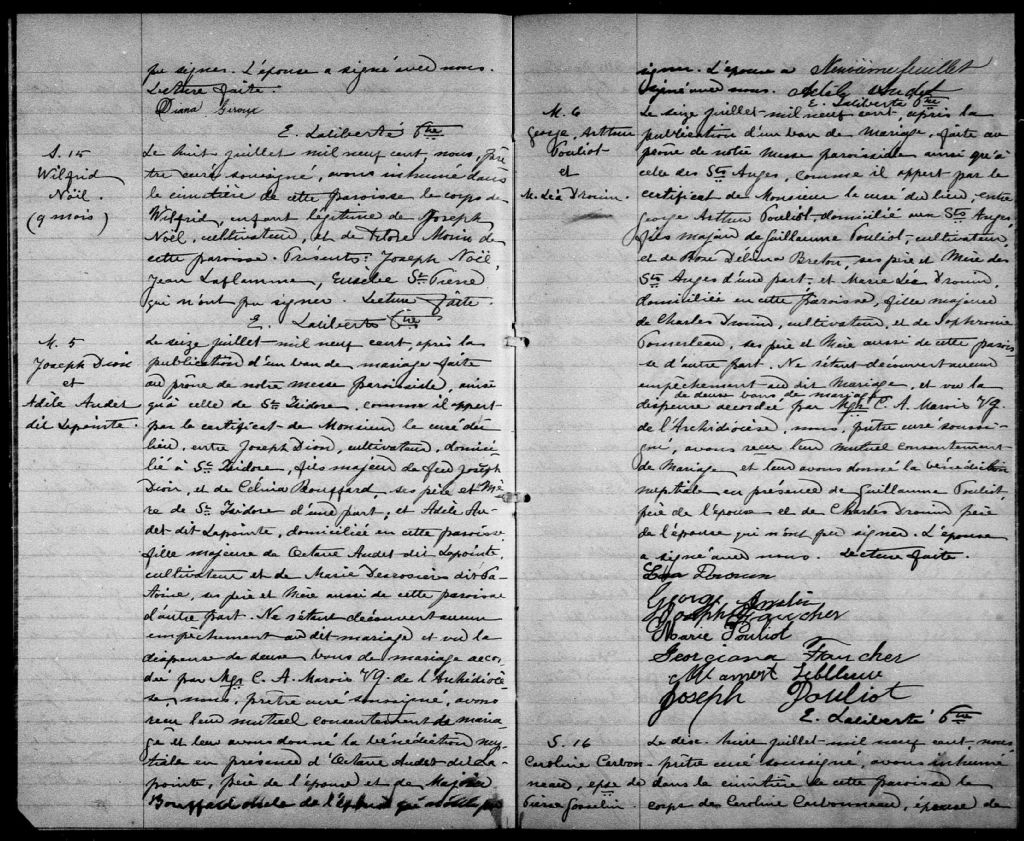 pu signer. L'épouse a signé avec nous.
Lecture faite.
Diana Giroux
E. Laliberté Ptre
S. 15
Wilfrid
Noël
(9 mois)
Le huit juillet mil neuf cent, nous, prê
tre curé soussigné, avons inhumé dans
le cimetière de cette paroisse le corps de
Wilfrid, enfant légitime de Joseph
Noël, cultivateur, et de Morin de
cette paroisse. Présents: Joseph Noël,
Jean Laflamme, Eusèbe St Pierre
qui n'ont pu signer. Lecture faite.
E. Laliberté Ptre
M. 5
Joseph Dion
et
Adèle Audet
dit Lapointe.
Le seize juillet mil neuf cent, après la
publication d'un ban de mariage faite
au prône de notre messe paroissiale, ainsi
qu'à celle de St Isidore, comme il appert
par le certificat de Monsieur le curé du
lieu, entre Joseph Dion, cultivateur, domici-
lié à St Isidore, fils majeur de feu Joseph
Dion, et de Célina Bouffard, ses père et Mè
re de St Isidore d'une part; et Adèle Au-
det dit Lapointe, domiciliée en cette paroisse,
fille majeure de Octave Audet dit Lapointe,
cultivateur et de Marie Descosiers dit
ses père et Mère aussi de cette paroisse
d'autre part. Ne s'étant découvert aucun
empêchement au dit mariage et vu la
dispense de deux bans de mariage accor-
dée par Mgr C. A. Marois V.G. de l'Archidiocè-
se, nous, prêtre curé soussigné, avons
reçu leur mutuel consentement de maria-
ge et leur avons donné la bénédiction nup-
tiale en présence d'Octave Audet dit La-
pointe, père de l'épouse et de
Bouffard oncle de l'époux qui
signer. L'épouse a
Neuvième feuillet
signé avec nous. Adèle Audet
E. Laliberté Ptre
M. 6
George, Arthur
Pouliot
et
M. Léa Drouin.
Le seize juillet mil neuf cent, après la
publication d'un ban de mariage, faite au
prône de notre messe paroissiale ainsi qu'à
celle des Sts Anges, comme il appert par le
certificat de Monsieur le curé du lieu, entre
George Arthur Pouliot, domicilié aux Sts Anges,
fils majeur de Guillaume Pouliot, cultivateur,
et de Rose Délima Breton, ses père et Mère des
Sts Anges d'une part; et Marie Léa Drouin,
domiciliée en cette paroisse, fille majeure
de Charles Drouin, cultivateur, et de Sophronie
Pomerleau, ses père et Mère aussi de cette parois
se d'autre part. Ne s'étant découvert aucun
empêchement au dit Mariage, et vu la
de deux bans de mariage
dispense accordée par Mgr C. A. Marois V.G.
de l'Archidiocèse, nous, prêtre curé soussi-
gné, avons reçu leur mutuel consentement
de Mariage et leur avons donné la bénédiction
nuptiale en présence de Guillaume Pouliot,
père de l'époux et de Charles Drouin père
de l'épouse qui n'ont pu signer. L'épouse
a signé avec nous. Lecture faite.
Léa Drouin
George
Joseph Faucher
Marie Pouliot
Georgiana Faucher
Joseph Pouliot
E. Laliberté Ptre
S. 16
Caroline Carbon-
neau, épse de
Pierre Gosselin.
Le dix-huit juillet mil neuf cent, nous
prêtre curé soussigné, avons inhumé
dans le cimetière de cette paroisse le
corps de Caroline Carbonneau, épouse de